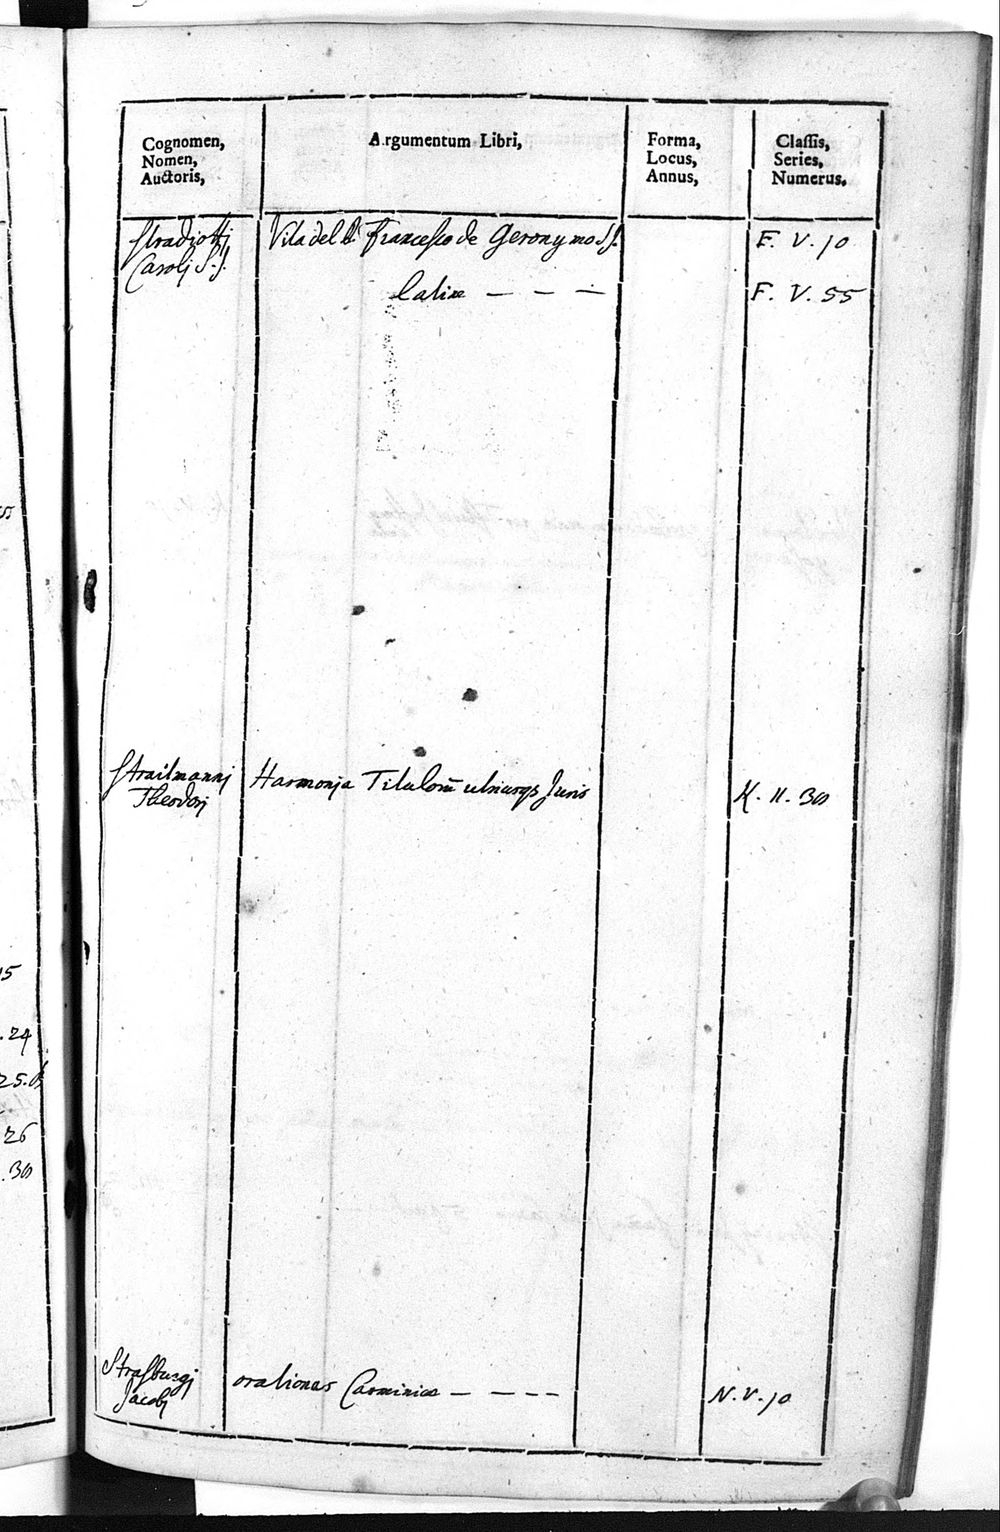 Cognomen,
Nomen,
Auctoris,
Argumentum Libri,
Forma,
Locus,
Annus,
Classis,
Series,
Numerus.
Stradiotti
Caroli S.J.
Vita del B. Francesco de Geronymo S.J.
F. V. 10
Latine — — —
F. V. 55
Strailmanni
Theodorj
Harmonja Titulorũ utriusqe Juris
K. 11. 30
Strasburgj
Jacobj
orationes Carminica — — — —
N. V. 10
15
.24
25.
26
.30